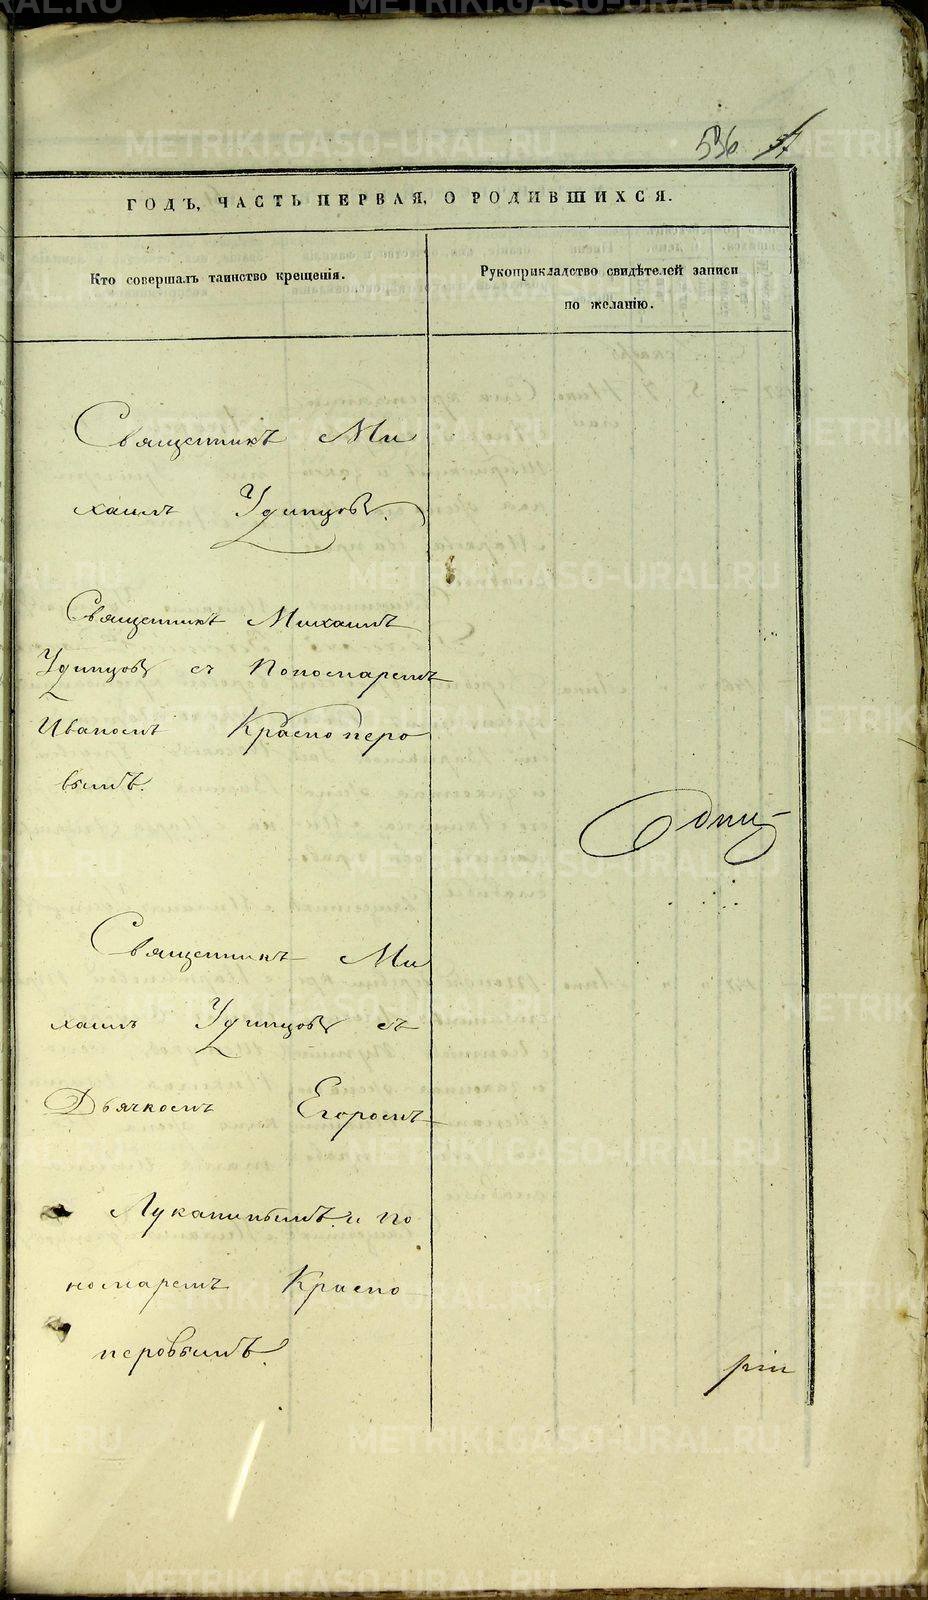 536 57
ГОДЪ, ЧАСТЬ ПЕРВАЯ, О РОДИВШИХСЯ.
Кто совершалъ таинство крещенія.
Рукоприкладство свидѣтелей записи
по желанію.
Священникъ Ми
хаилъ Удинцовъ.
Священникъ Михаилъ
Удинцовъ съ Пономаремъ
Иваномъ Красноперо
вымъ.
Священникъ Ми
хаилъ Удинцовъ съ
Дьячкомъ Егоромъ
Луканинымъ и по
номаремъ Красно
перовымъ.
ріи
METRIKI.GASO-URAL.RU